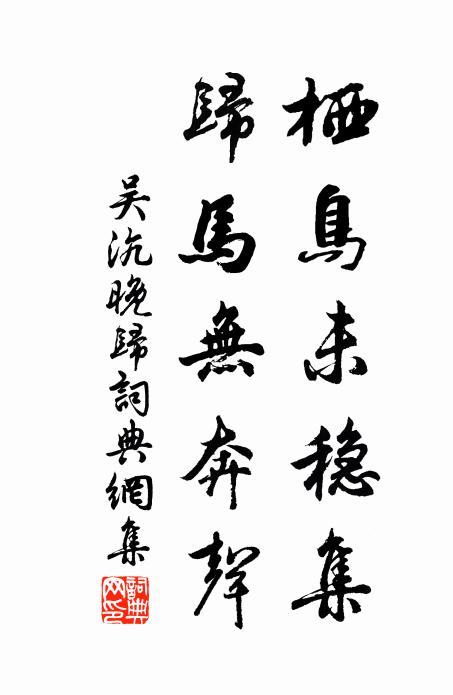 栖鳥未穩集
歸馬無奔聲
吴沆晚歸詞典網集
詞典網印